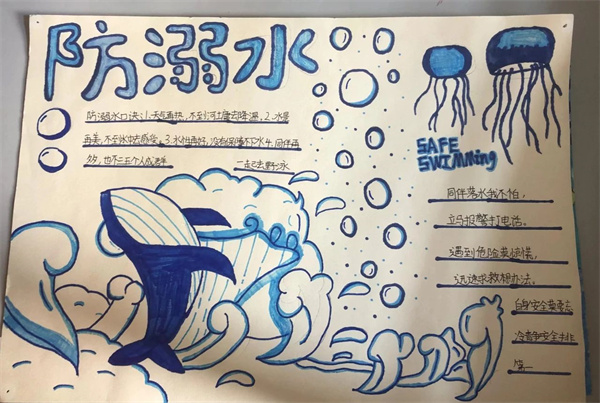 防溺水
防溺水口诀:1.天气再热,不到河塘去降温,2.水景
再美,不到水中去感受,3.水性再好,没有保障不下水4.同伴再
多,也不三五个人成群
一起去野泳
SAFE
SWIMMing
同伴落水我不怕,
立马报警打电话。
遇到危险莫慌张,
迅速求救想办法。
自身安全要
冷静 安全
第一